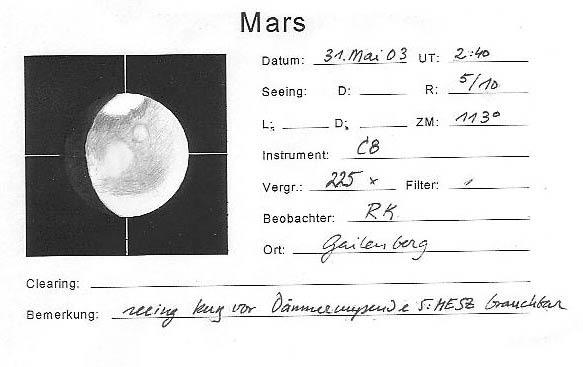 Mars
Datum: 31. Mai 03 UT: 2:40
Seeing: D: R: 5/10
L: D: ZM: 113°
Instrument: C8
Vergr.: 225 x Filter: /
Beobachter: RK
Ort: Gailenberg
Clearing:
Bemerkung: seeing kurz vor Dämmerungsende 5:MESZ brauchbar